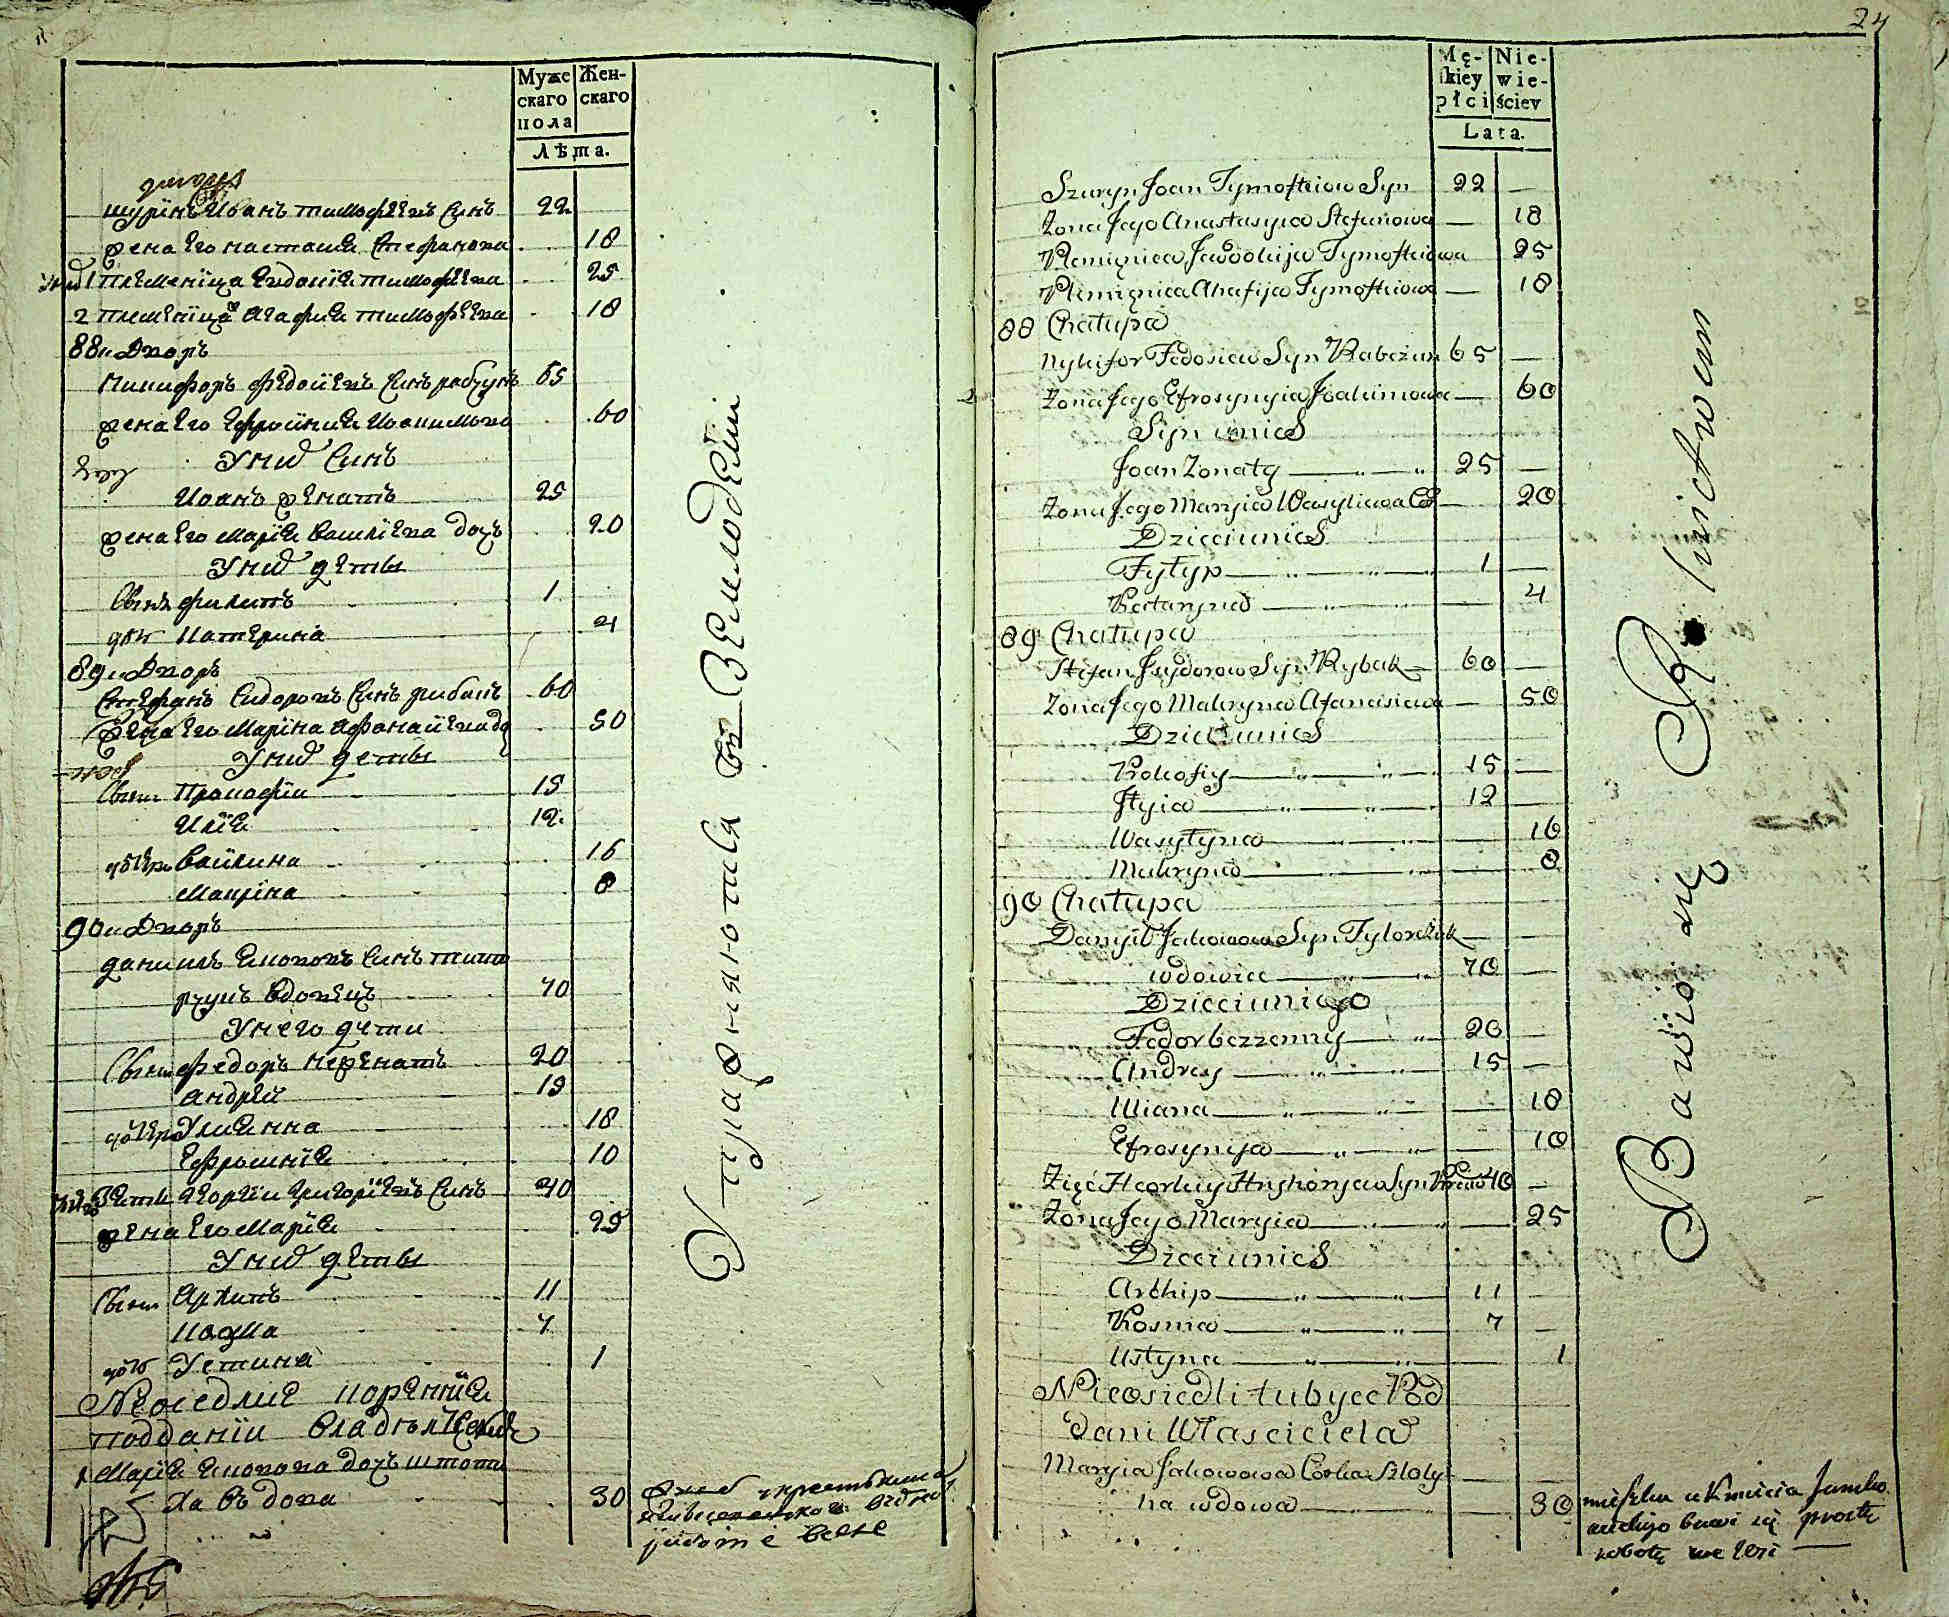 Муже
скаго
пола
Жен-
скаго
Лѣта.
шуринъ Иванъ тимофѣевъ Синъ 22
жена Его настасия Стефанова 18
1 племеница Евдокия тимофѣева 25
2 племеница Агафия тимофѣева 18
88й Дворъ
Никифоръ Федосиевъ Синъ 65
жена Его Ефросиния Иоакимова 60
У них Синъ
Иоанъ женатъ 25
жена Его Мария Василиева дочь 20
У них дети
Сынъ филипъ 1
дочь Катерина 4
89й Дворъ
Стефанъ Сидоровъ Синъ рибакъ 60
жена Его Макрина Афанасиева до 50
У них дети
Сыны Прокофий 15
Илия 12
дочери Василина 16
Макрина 8
90й Дворъ
данило Яковов Синъ
вдовец 70
У него дети
Сыны Федоръ неженатъ 20
андрей 15
дочери Улиянна 18
Ефросиния 10
Зять Георгий Григориевъ Синъ 40
жена Его Мария 25
У них дети
Сыны Архипъ 11
Козма 7
дочь Устина 1
Неоседлие коренние
поддании
Мария Яковова дочь
ха вдова 30
Упражняются въ Земледелии
24
Mę-
skiey
płci
Nie-
wie-
ściey
Lata.
Szuryn Joan Tymofteiow Syn 22 —
Zona Jego Anastasyia Stefanowa — 18
Plemięnica Jewdokija Tymofteiowa 25
Plemięnica Ahafija Tymofteiowa — 18
88 Chałupa
Nykifor Fedosiew Syn 65 —
Zona Jego Efrosynyia Joakimowa — 60
Syn u nich
Joan Zonaty — 25 —
Zona Jego Maryia Wasyliewa — 20
Dzieci u nich
Fyłyp — 1 —
Kataryna — 4
89 Chałupa
Stefan Isydorow Syn Rybak — 60 —
Zona Jego Makryna Afanasiewa — 50
Dzieci u nich
Prokofiy — 15 —
Ilyia — 12 —
Wasyłyna — 16
Makryna — 8
90 Chałupa
Danyił Jakowow Syn — —
wdowiec — 70 —
Dzieci u niego
Fedor bezzenny — 20 —
Andrey — 15 —
Uliana — 18
Efrosynija — 10
Zięć Heorhiy Hryhoryiew Syn 40 —
Zona Jego Maryia — 25
Dzieci u nich
Archip — 11 —
Kosma — 7 —
Ustyna — 1
Nieosiedli tubycze Pod
dani Własciciela
Maryia Jakowowa Corka
na wdowa — 30
Bawią się Rolnictwem
mieszka u Kmiecia
bawi się prostą
robotą we wsi —